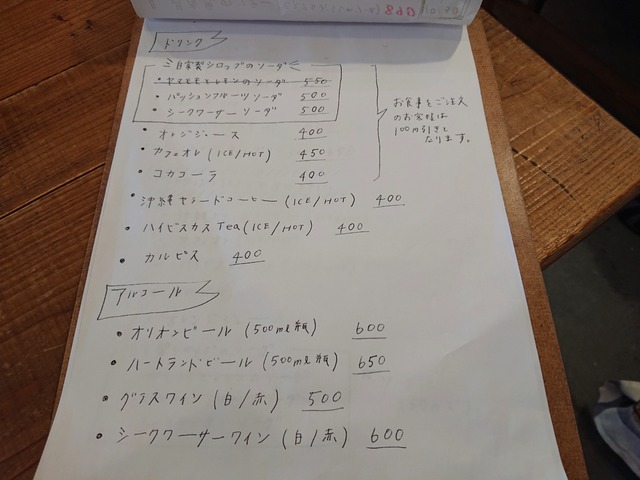 ドリンク
自家製シロップのソーダ
・ヤマモモとレモンのソーダ 550
・パッションフルーツソーダ 500
・シークワーサーソーダ 500
・オレンジジュース 400
・カフェオレ (ICE/HOT) 450
・コカコーラ 400
お食事をご注文
のお客様は
100円引きと
なります。
・沖縄 コーヒー (ICE/HOT) 400
・ハイビスカスTea (ICE/HOT) 400
・カルピス 400
アルコール
・オリオンビール (500ml瓶) 600
・ハートランドビール (500ml瓶) 650
・グラスワイン (白/赤) 500
・シークワーサーワイン (白/赤) 600